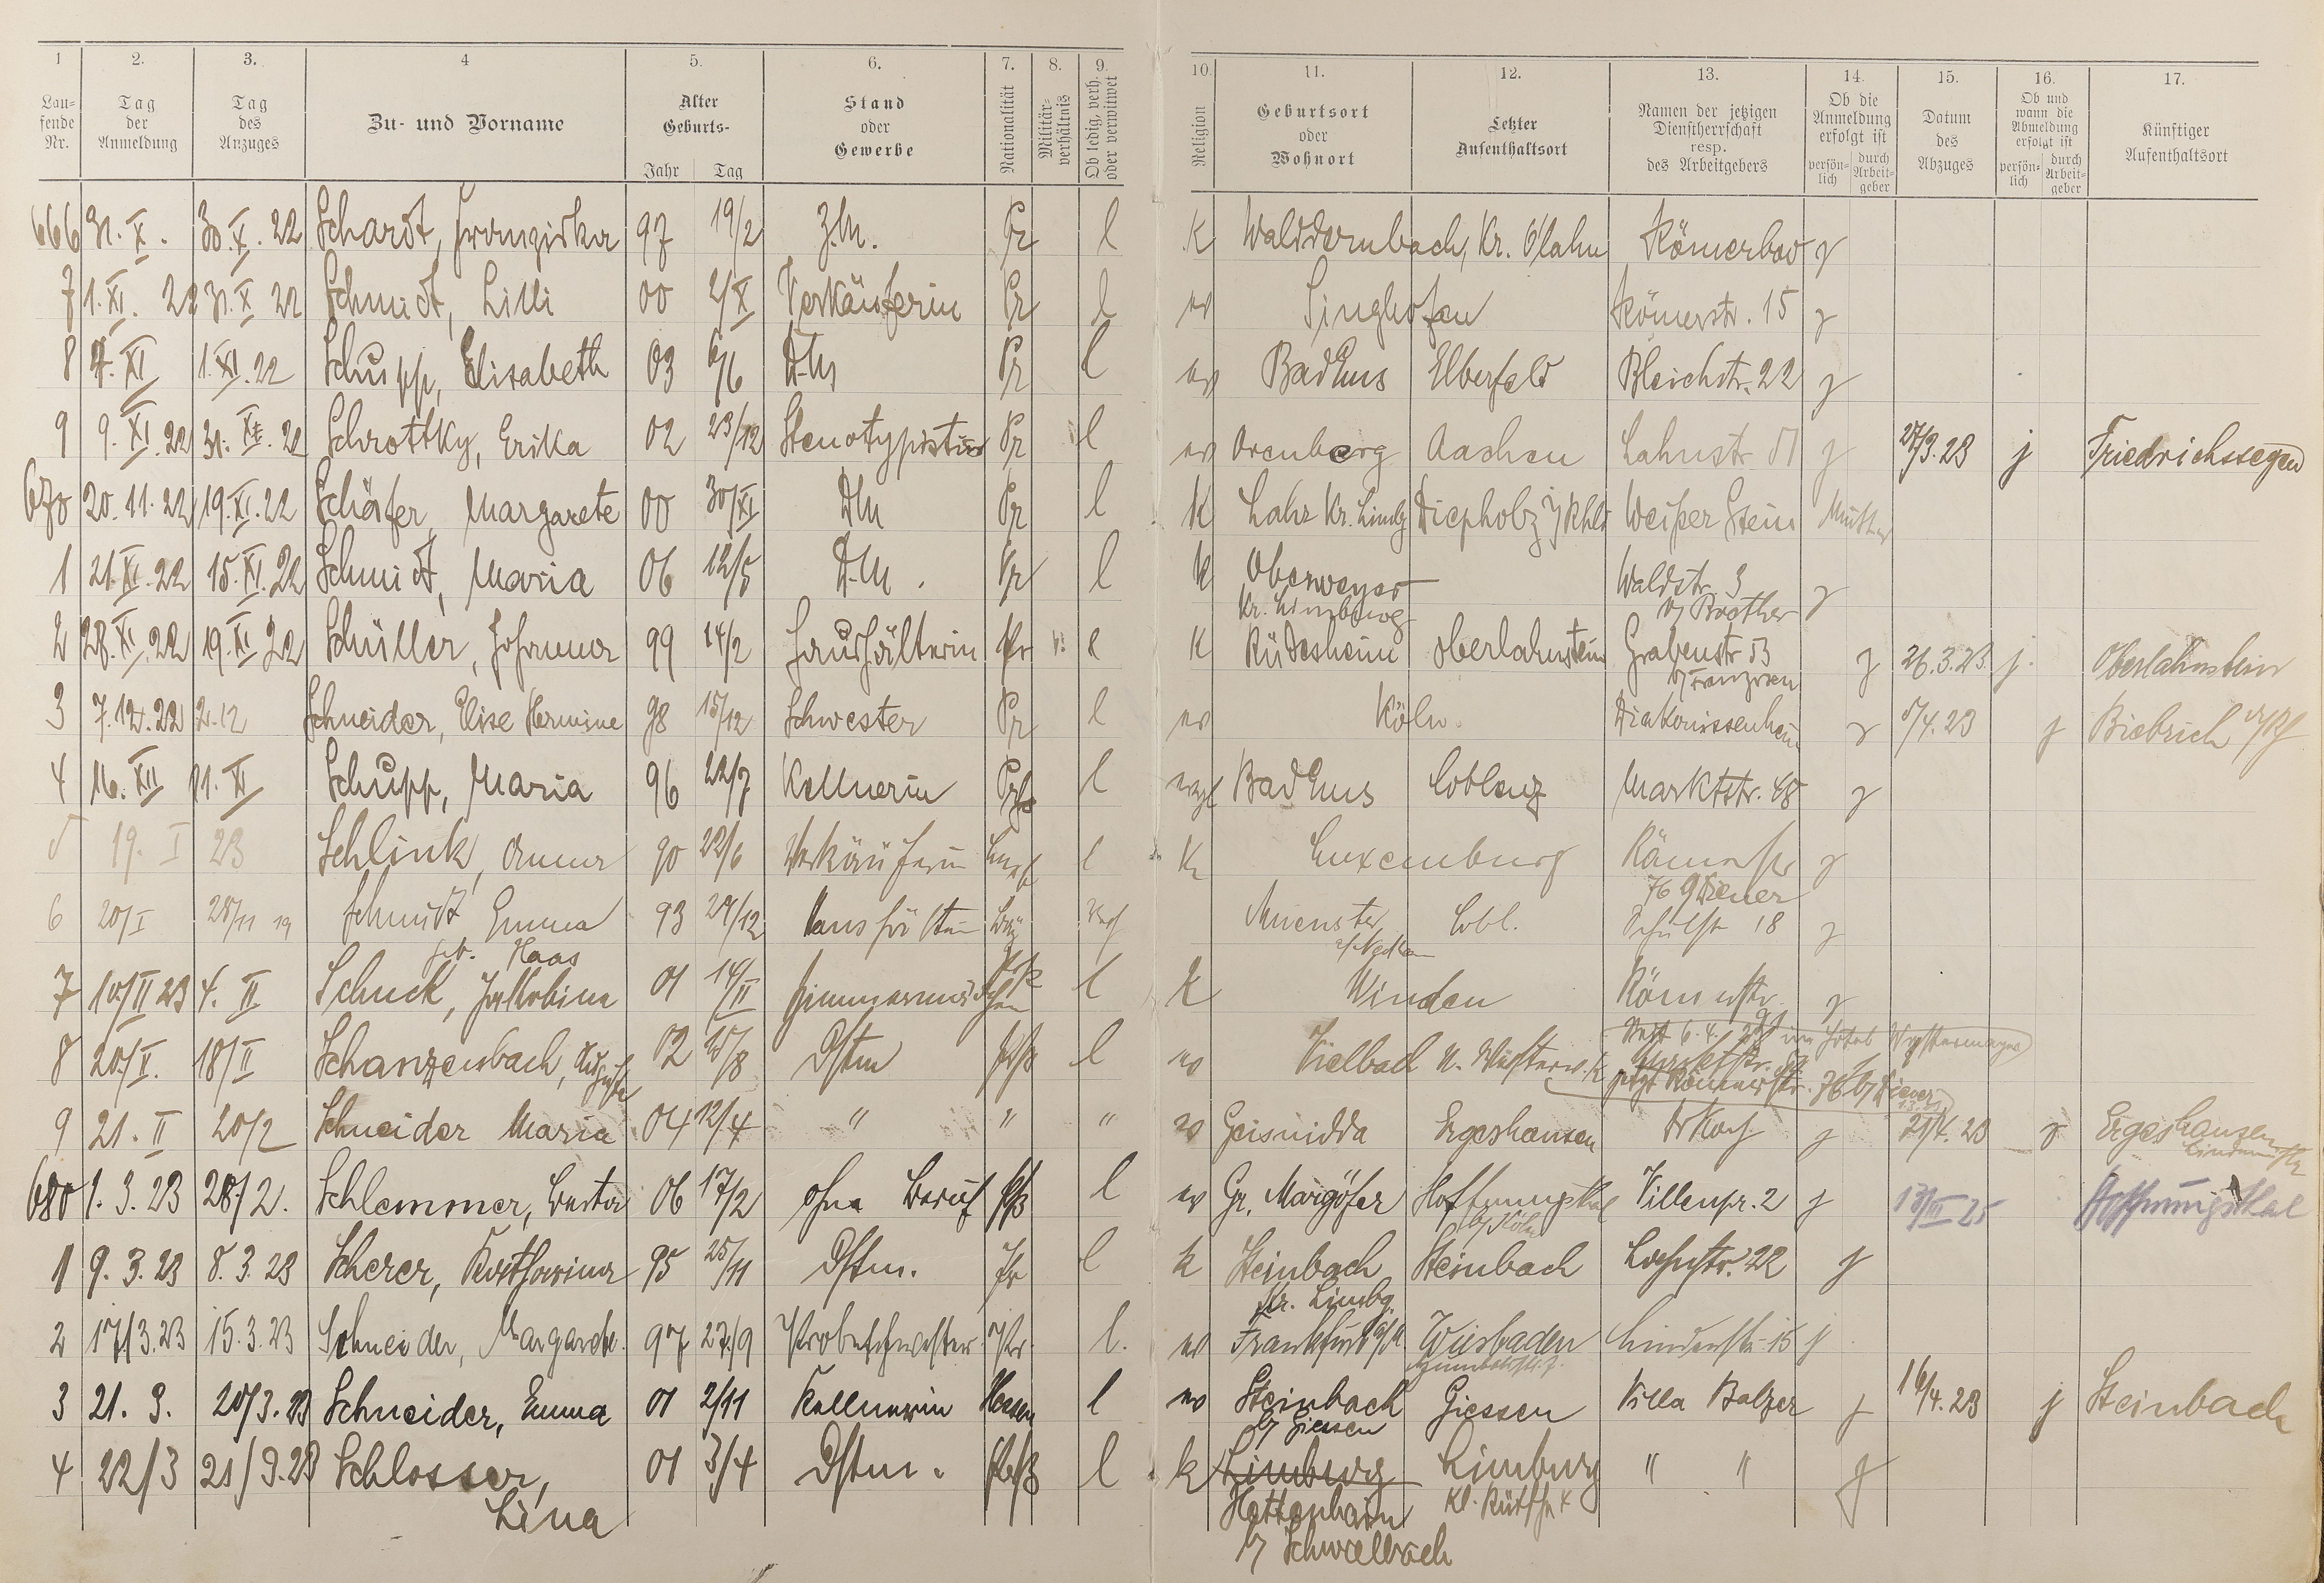 1 2. 3. 4 5. 6. 7. 8. 9. 10. 11. 12. 13. 14. 15. 16. 17.
Lau-
fende
Nr.
Tag
der
Anmeldung
Tag
des
Anzuges
Zu- und Vorname
Alter
Geburts-
Jahr Tag
Stand
oder
Gewerbe
Nationalität
Militär-
verhältnis
Ob ledig, verh.
oder verwitwet
Religion
Geburtsort
oder
Wohnort
Letzter
Aufenthaltsort
Namen der jetzigen
Dienstherrschaft
resp.
des Arbeitgebers
Ob die
Anmeldung
erfolgt ist
persön-
lich
durch
Arbeit-
geber
Datum
des
Abzuges
Ob und
wann die
Abmeldung
erfolgt ist
persön-
lich
durch
Arbeit-
geber
Künftiger
Aufenthaltsort
666 31. X. 30. X. 22 Schardt, Franziska 97 19/2 Z.M. Pr l K Walddernbach, Kr. O/lahn Römerbad j
7 1. XI. 22 31. X 22 Schmidt, Lilli 00 2/X Verkäuferin Pr l ev Singhofen Römerstr. 15 j
8 4. XI 1. XI. 22 Schupp, Elisabeth 03 6/6 D.M Pr l ev Bad Ems Elberfeld Bleichstr. 22 j
9 9. XI. 22 31. 22 Schrottky, Erika 02 23/12 Stenotypistin Pr l ev Aachen Lahnstr. 51 j 27/3. 23 j Friedrichssegen
670 20. 11. 22 19. XI. 22 Schäfer, Margarete 00 30/XI DM Pr l K Lahr Kr. Limbg Diepholz Weißer Stein Mutter
1 21. XI. 22 15. XI. 22 Schmidt, Maria 06 12/5 D.M. Pr l K Oberweyer Waldstr. 3 j
Kr. Limburg
2 28. XI. 22 19. XI 22 Schüller, Johanna 99 14/2 Haushälterin Pr l K Rüdesheim Oberlahnstein Grabenstr 53 j 26. 3. 23 j. Oberlahnstein
3 7. 12. 22 2. 12 Schneider, Elise Hermine 98 15/12 Schwester Pr l ev Köln Diakonissenheim j 5/4. 23 j Biebrich a/Rh
4 16. XII 11. XI Schupp, Maria 96 22/7 Kellnerin l Bad Ems Coblenz Marktstr. 48 j
5 19. I 23 Schlink, Anna 90 22/6 Verkäuferin l K Luxemburg Römerstr j
76 Diener
6 20/I 28/11 19 Schmidt Emma 93 29/12 Haushälterin Muenster Cobl. Schulstr 18 j
geb. Haas
7 10/II 23 4. II Schuck, Jakobine 01 14/II Zimmermädchen l K Winden Römerstr. j
8 20/II. 18/II Schanzenbach, Auguste 02 15/8 Dstm l ev Vielbach
jetzt Römerstr. 76 b/ Diener
9 21. II 20/2 Schneider Maria 04 12/4 " " " ev Geisnidda Ergeshausen Dr Koch j 21/4. 23 j Ergeshausen
680 1. 3. 23 28/2. Schlemmer, Berta 06 17/2 ohne Beruf l ev Hoffnungsthal Villenpr. 2 j 13/III 25 Hoffnungsthal
b/ Köln
1 9. 3. 23 8. 3. 23 Scherer, Katharina 95 25/11 Dstm. Pr l k Steinbach Steinbach Lahnstr. 22 j
Kr. Limbg.
2 17/3. 23 15. 3. 23 Schneider, Margarete. 97 27/9 Probeschwester Pr. l. ev Frankfurt a/M Wiesbaden Lindenstr. 15 j
3 21. 3. 20/3. 23 Schneider, Emma 01 2/11 Kellnerin Hessen l ev Steinbach Giessen Villa Balzer j 16/4. 23 j Steinbach
b/ Giessen
4 22/3 21/3. 23 Schlosser, 01 3/4 Dstm. l k Limburg Limburg " " j
Lina Hettenhain
b/ Schwalbach